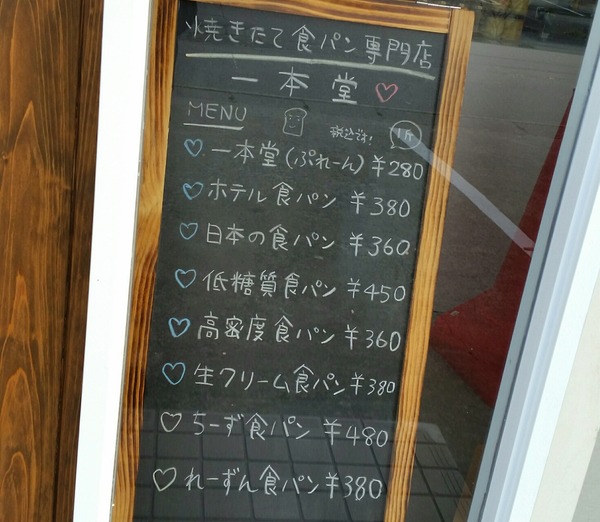 焼きたて食パン専門店
一本堂
MENU
税込です! 1斤
一本堂(ぷれーん) ¥280
ホテル食パン ¥380
日本の食パン ¥360
低糖質食パン ¥450
高密度食パン ¥360
生クリーム食パン ¥380
ちーず食パン ¥480
れーずん食パン ¥380